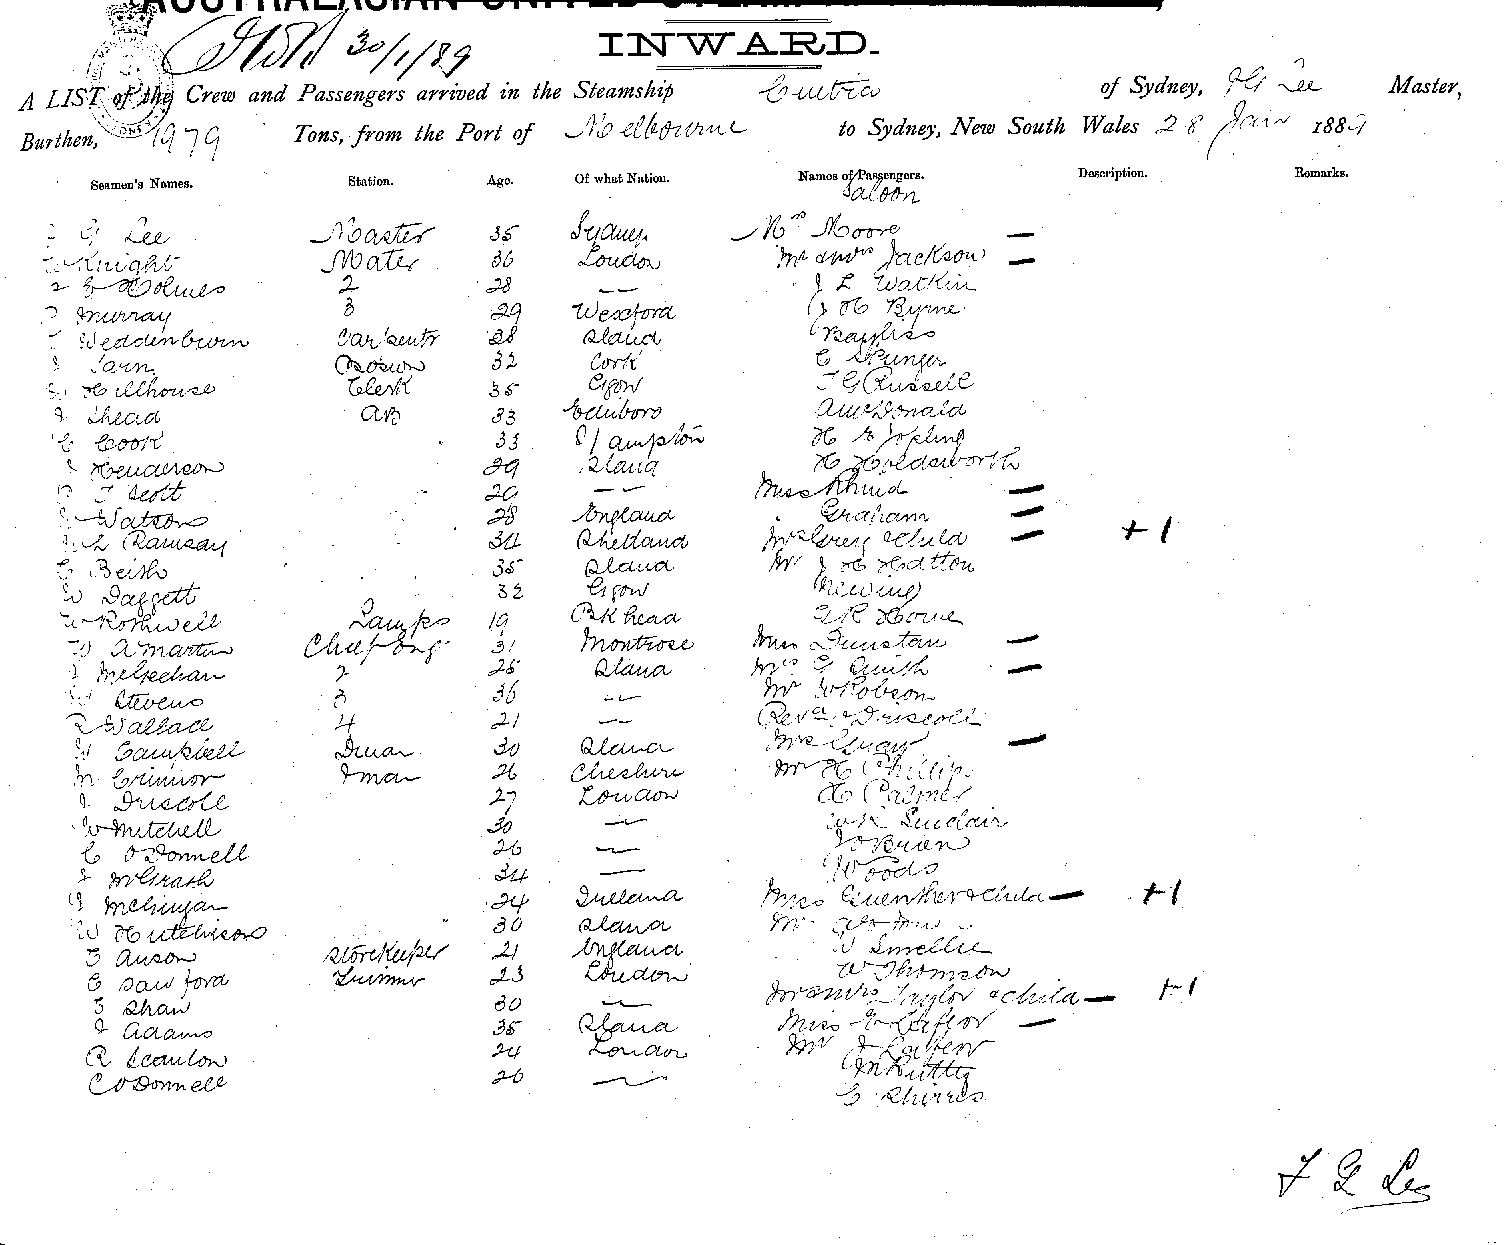 INWARD.
30/1/89
A LIST of the Crew and Passengers arrived in the Steamship Cintra of Sydney, F G Lee Master,
Burthen, 1979 Tons, from the Port of Melbourne to Sydney, New South Wales 28 Jan 1889
Seamen's Names. Station. Age. Of what Nation. Names of Passengers. Description. Remarks.
Saloon
G Lee Master 35 Sydney Mrs Moore —
Knight Mater 36 London Mr & Mrs Jackson —
Holmes 2 28 — J L Watkin
Murray 3 29 Wexford J H Byrne
Weddenburn Carpentr 38 Sland Bayliss
Tarn Bosun 32 Cork C
Hillhouse Clerk 35 Glgow T G Russell
Shead AB 33 Edinboro A McDonald
C Cook 33 S/ampton H E Jopling
Henderson 29 Sland H Holdsworth
T Scott 29 — Miss —
Watson 28 England Graham —
L Ramsay 34 Shetland Mrs Greig & Child — +1
C Beith 35 Sland Mr J H Hatton
W Daggett 32 Glgow Newing
W Rothwell Lamps 19 Bkhead Howe
W A Martin Chief Eng 31 Montrose Miss Dunstan —
McGeehan 2 25 Sland Mrs G Smith —
W Stevens 3 36 — Mr W Robson
R Wallace 4 21 — Revd Driscoll
W Campbell Dman 30 Sland Mrs Gray —
M Fman 26 Cheshire Mr H Phillips
J Driscoll 27 London H Palmer
W Mitchell 30 — W R Sinclair
C O'Donnell 26 — J O'Brien
J McGrath 34 — Woods
24 Ireland Miss Guenther & Child — +1
W Hutchison 30 Sland Mr
E Anson Storekeeper 21 England W Smellie
C Sawford Trimmer 23 London W Thomson
E Shaw 30 — Mr & Mrs Taylor & Child — +1
J Adams 35 Sland Miss —
R Scanlon 24 London Mr
C O'Donnell 26 — M Rutty
C Shirres
F G Lee